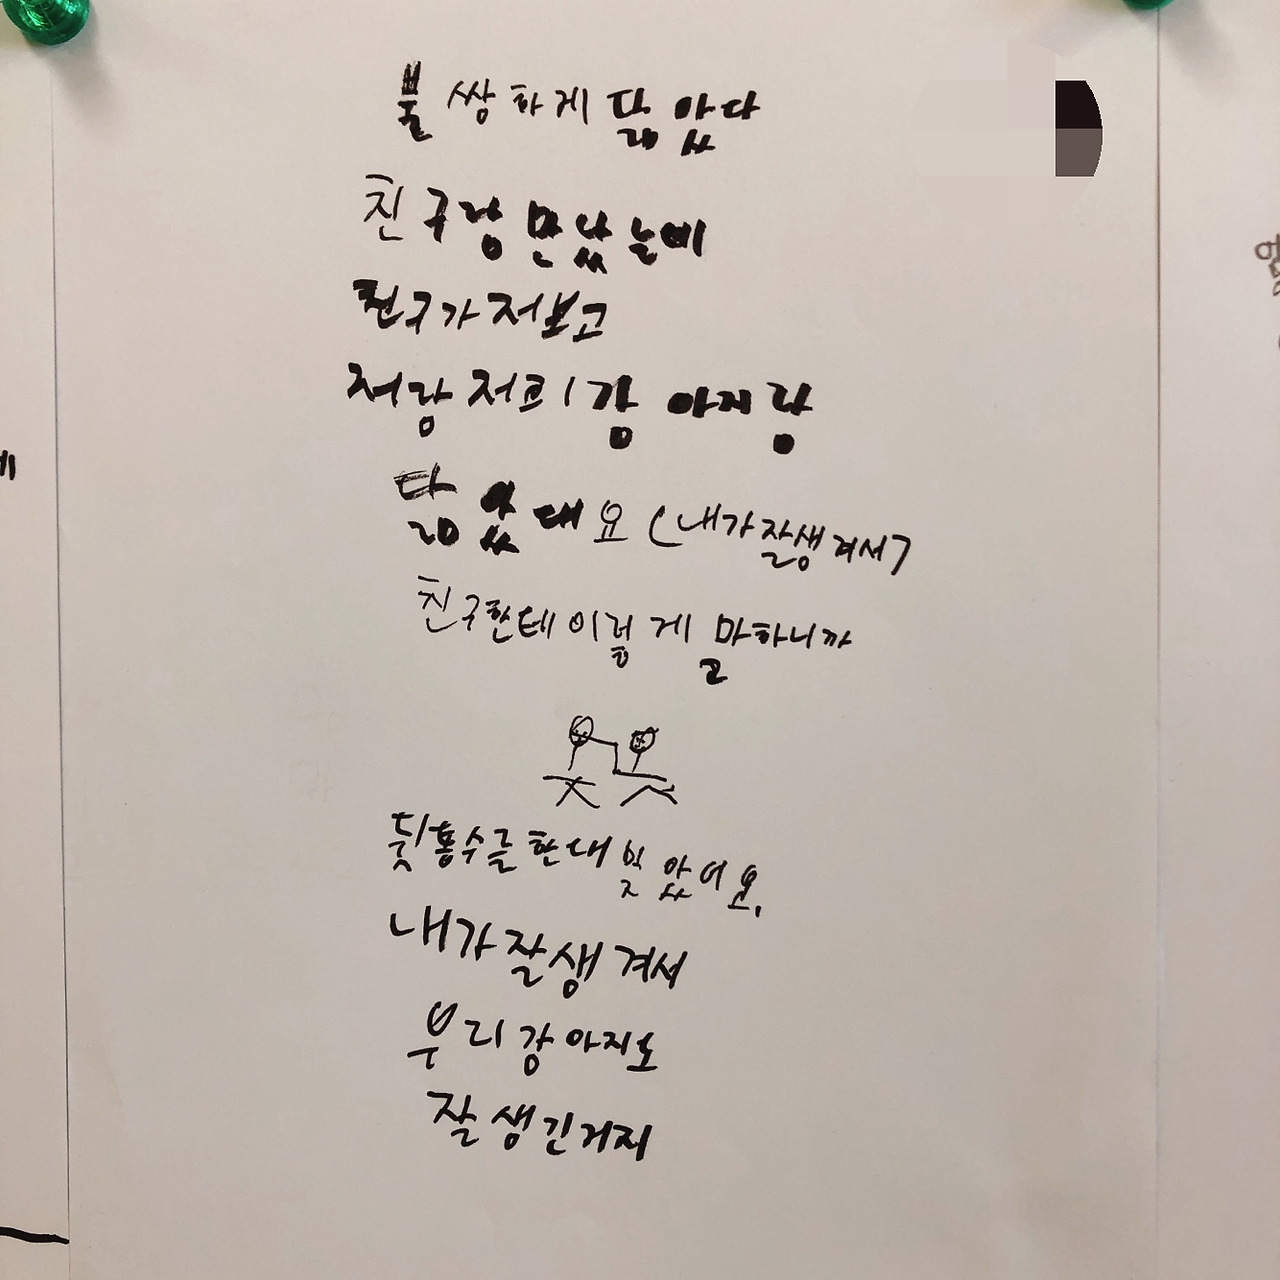 불쌍하게 닮았다
친구랑 만났는데
친구가 저보고
저랑 저희 강아지랑
닮았대요 (내가 잘생겨서)
친구한테 이렇게 말하니까
뒷통수를 한대 맞았어요.
내가 잘생겨서
우리 강아지도
잘생긴거지